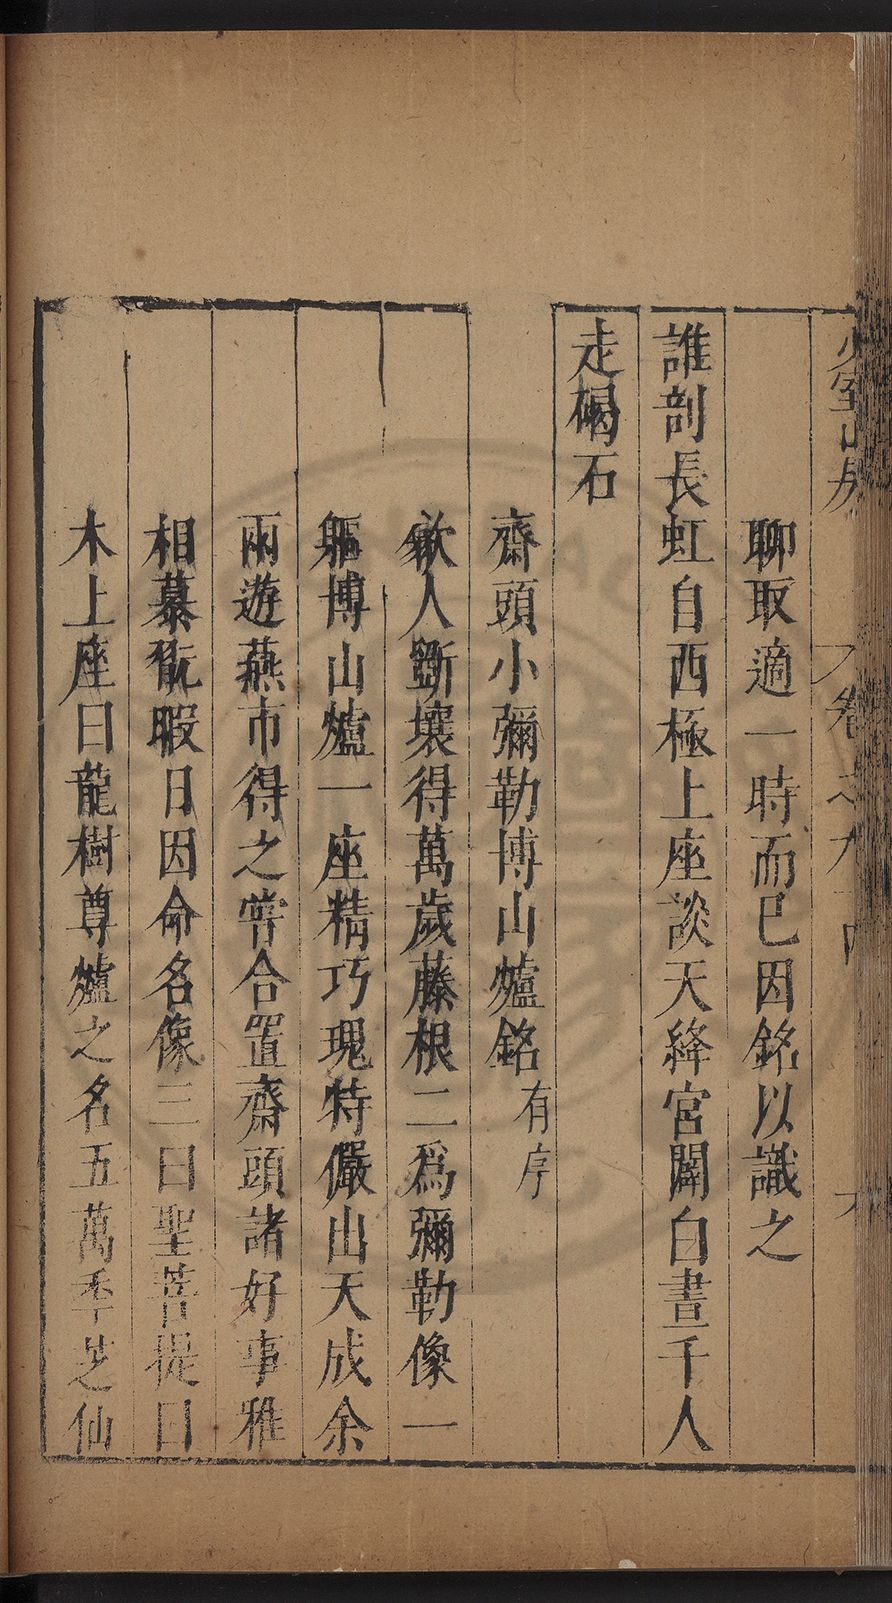 少室山房
卷之九十四
聊取適一時而已因銘以識之
誰剖長虹自西極上座談天絳宮闢白晝千人
走碣石
齋頭小彌勒博山爐銘有序
歙人斵壤得萬歲藤根二爲彌勒像一
軀博山爐一座精巧瑰特儼山天成余
兩遊燕市得之嘗合置齋頭諸好事雅
相慕翫暇日因命名像三曰聖菩提曰
木上座曰龍樹尊爐之名五萬季芝仙